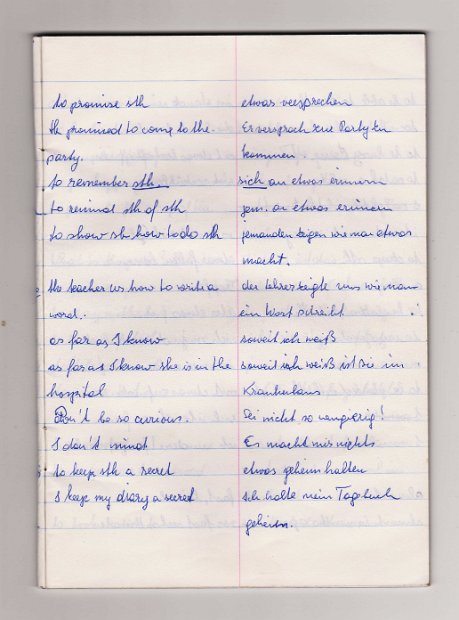 to promise sth etwas versprechen
He promised to come to the Er versprach zur Party zu
party. kommen
to remember sth. sich an etwas erinnern
to remind sth of sth jem. an etwas erinnern
to show sb how to do sth jemanden zeigen wie man etwas
macht.
the teacher us how to write a der Lehrer zeigte uns wie man
word. ein Wort schreibt
as far as I know soweit ich weiß
as far as I know she is in the soweit ich weiß ist sie im
hospital Krankenhaus
Don't be so curious. Sei nicht so neugierig!
I don't mind Es macht mir nichts
to keep sth a secret etwas geheim halten
I keep my diary a secret Ich halte mein Tagebuch
geheim.